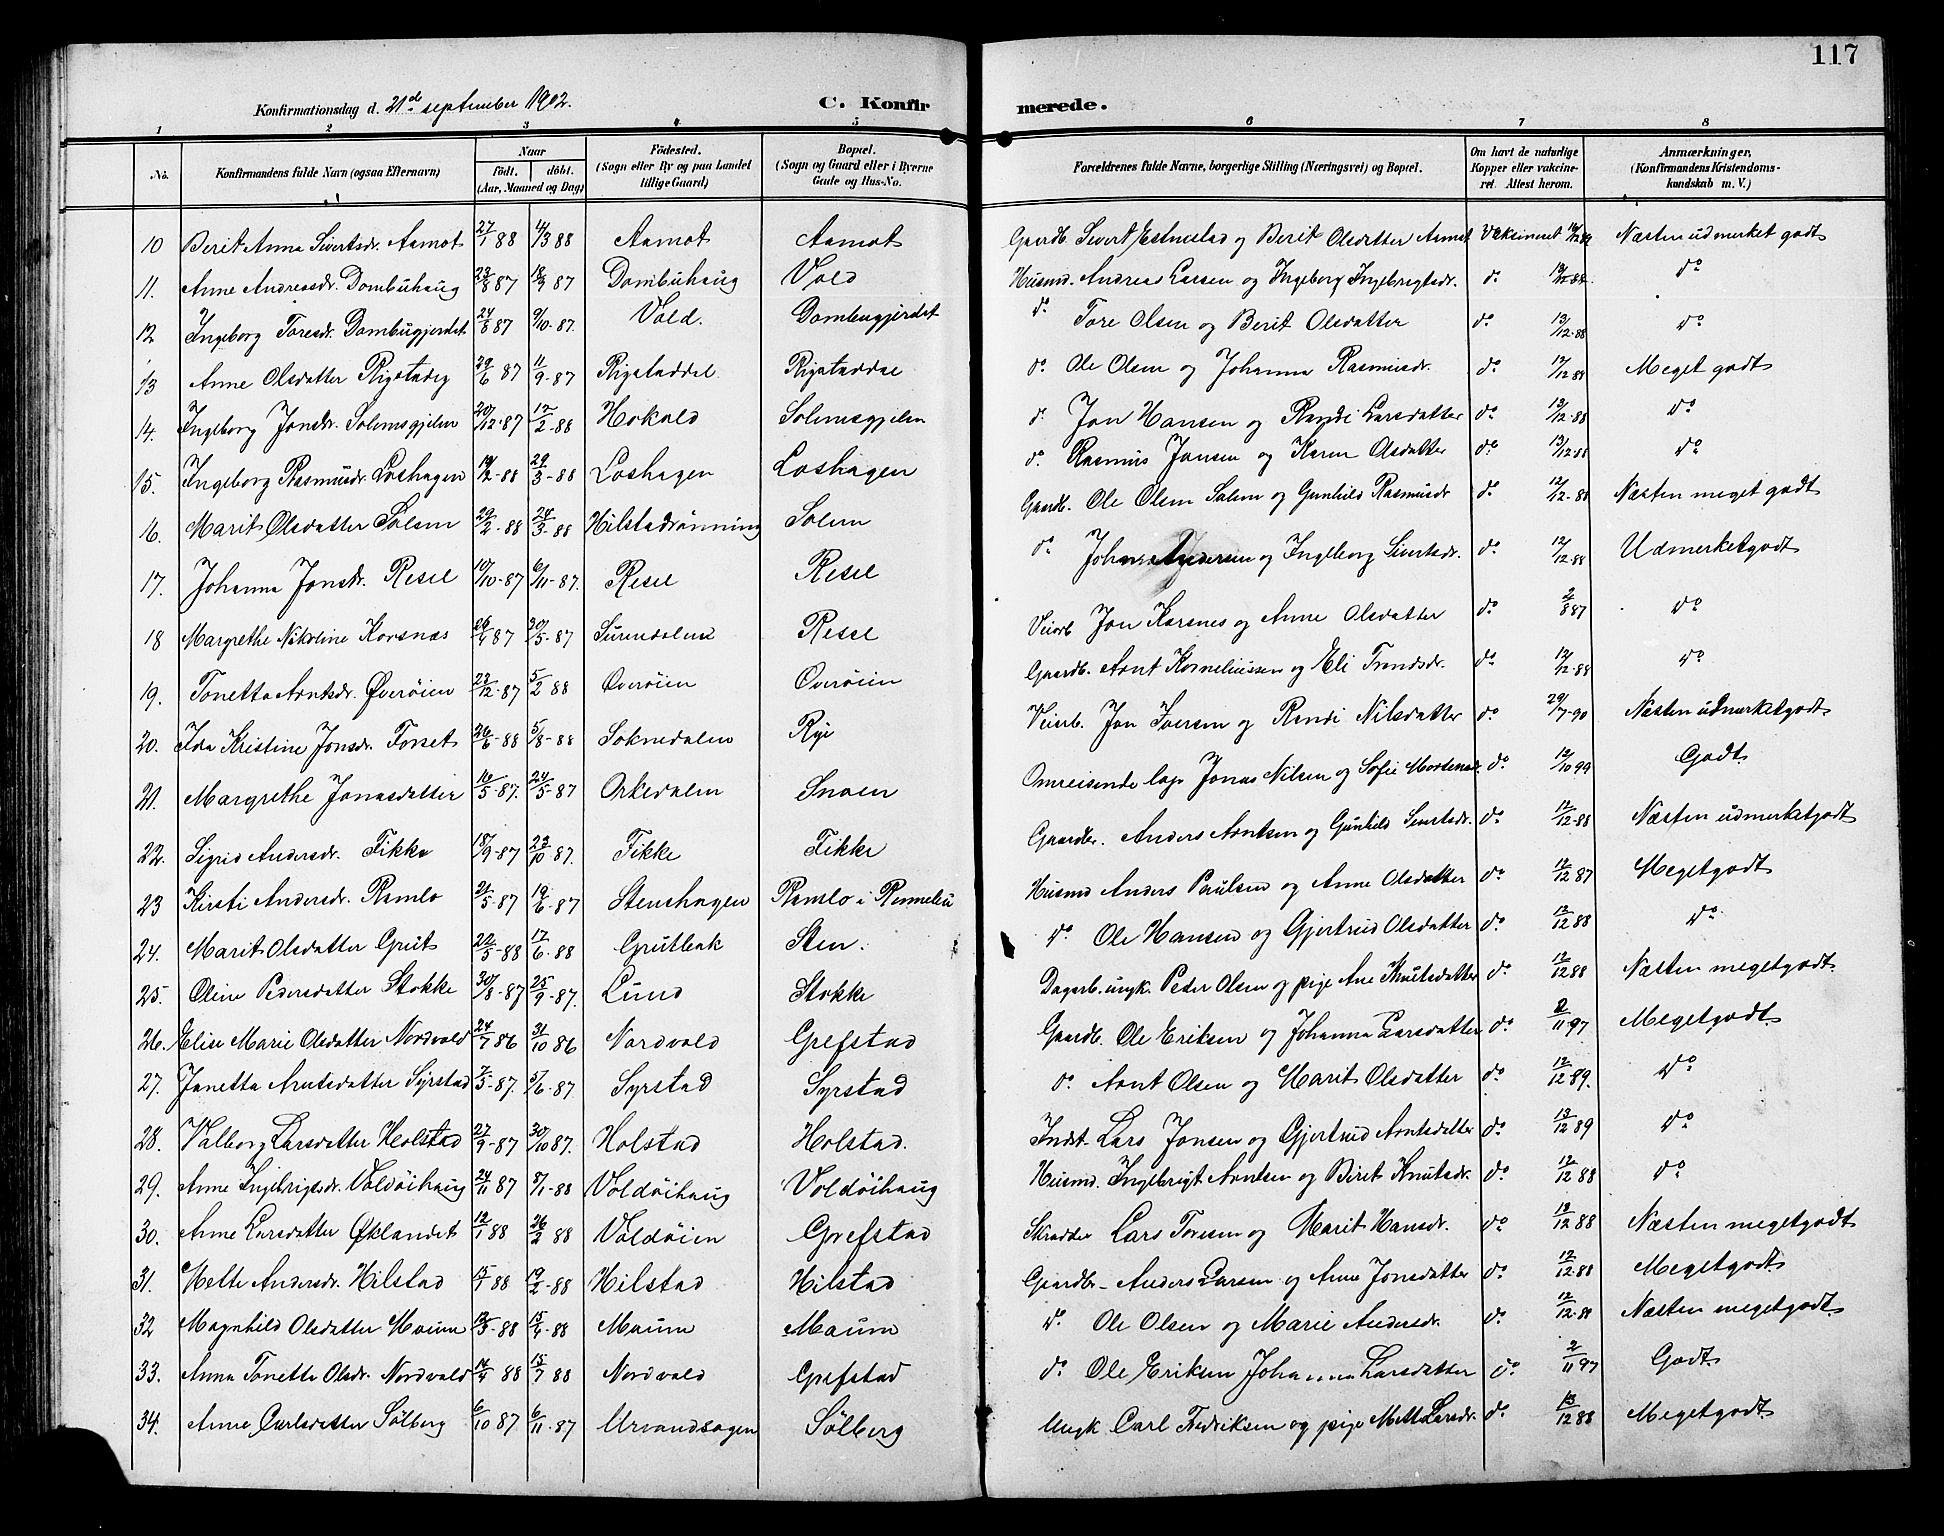 117
Konfirmationsdag d. 21de september 1902. C. Konfirmerede.
1 2 3 4 5 6 7 8
No. Konfirmandens fulde Navn (ogsaa Efternavn) Naar født. døbt. (Aar, Maaned og Dag) Fødested. (Sogn eller By og paa Landet tillige Gaard) Bopæl. (Sogn og Gaard eller i Byerne Gade og Hus-No. Forældrenes fulde Navne, borgerlige Stilling (Næringsvei) og Bopæl. Om havt de naturlige Kopper eller vakcineret. Attest herom. Anmærkninger, (Konfirmandens Kristendomskundskab m. V.)
10 Berit Anna Sivertsdr. Aamot 27/1 88 4/3 88 Aamot Aamot Gaardb. Sivert Estnestad og Berit Olsdatter Aamot Vaksineret Næsten udmerket godt
11. Anne Andreasdr. Dombuhaug 23/8 87 18/9 87 Dombuhaug Vold Husmd. Andreas Larsen og Ingeborg Ingebrigtsdr. do do
12 Ingeborg Toresdr. Dombugjerdet 24/8 87 9/10-87. Vold. Dombugjerdet do Tore Olsen og Berit Olsdatter do 13/12-88 do
13 Anne Olsdatter Rigstadeg 29/6 87 11/9-87 Rigstaddal Rigstaddal do Ole Olsen og Johanna Rasmusdr. do 12/12 88 Meget godt
14. Ingeborg Jonsdr. Solemsgjelen 20/12-87 12/2-88 Hokald Solemsgjelen d. Jon Hansen og Randi Larsdatter do 12/12-88 do
15. Ingeborg Rasmusdr. Loshagen 19/2-88 29/3-88 Loshagen Loshagen do Rasmus Jonsen og Karen Olsdatter do 13/12-88 do
16. Marit Olsdatter Solem 29/2-88 24/3-88 Hilstadrønning Solem Gaardb. Ole Olsen Solem og Gunhild Rasmusdr do 12/12-88 Næsten meget godt
17. Johanna Jonsdr. Resel 10/10-87 6/11-87. Resel Resel do Johan Andersen og Ingeborg Sivertsdr. do 12/12-88 Udmerketgodt
18 Margrethe Nikoline Korsnæs 26/4 87 30/5-87 Surendalen Resel Veiarb Jon Korsnes og Anne Olsdatter do 2/8 87 do
19. Tonetta Arntsdr. Øverøien 23/12-87 5/2 88 Øverøien Overøien Gaardb. Arnt Korneliussen og Eli Trondsdr. do 12/12-88 do
20. Ida Kristine Jonsdr. Forset 26/6-88 5/8-88 Soknedalen Rye Veiarb. Jon Iversen og Randi Nilsdatter do 29/7-90 Næsten udmerketgodt
21. Margrethe Jonasdatter 16/5-87. 24/5-87 Orkedalen Snoen Omreisende lap Jonas Nilsen og Sofie Mortensd. do 12/10 99 Godt
22. Sigrid Andersdr. Fikke 18/9-87 23/10 87. Fikke Fikke Gaardbr. Anders Arntsen og Gunhild Sivertsdr. do 12/12-88 Næsten udmerketgodt
23 Kirsti Andersdr. Ramlo 21/5-87 19/6-87 Stenshagen Ramlo i Rennebu Husmd Anders Paulsen og Anne Olsdatter do 12/12 87 Megetgodt
24. Marit Olsdatter Grut 22/5-88 17/6-88 Grutbak Sten. do Ole Hansen og Gjertrud Olsdatter do 12/12 88 do
25. Oline Pedersdatter Stokke 30/8-87 25/9-87. Lund Stokke Dagarb. ungk. Peder Olsen og pige Ane Knutsdatter do 12/12 88 Næsten megetgodt
26. Elise Marie Olsdatter Nordvald 24/7 86 31/10 86 Nordvald Grefstad Gaardb. Ole Eriksen og Johanna Larsdatter do 2/11 97 Megetgodt
27. Janetta Arntsdatter Syrstad 7/5-87. 5/6-87 Syrstad Syrstad do Arnt Olsen og Marit Olsdatter do 12/12 89. do
28. Valborg Larsdatter Holstad 27/9-87 30/10 87. Holstad Holstad. Indst. Lars Jonsen og Gjertrud Arntsdatter do 12/12 89 do
29. Anne Ingebrigtsdr. Voldøihaug 24/11 87 5/1-88 Voldøihaug Voldøihaug Husmd. Ingebrigt Arntsen og Berit Knutsdr. do 12/12 88 do
30. Anne Larsdatter Øklandet 12/1 88 26/2 88 Voldøien Grefstad Skrædder Lars Toresen og Marit Hansdr. do 12/12 88 Næsten megetgodt
31. Mette Andersdr. Hilstad 15/1 88 19/2-88 Hilstad Hilstad Gaardbr- Anders Larsen og Anne Jonsdatter do 12/12-88 Megetgodt
32 Magnhild Olsdatter Moum 13/3-88 15/4-88 Moum Moum do Ole Olsen og Marie Andersdr. do 12/12-88 Næsten megetgodt
33. Anna Tonette Olsdr. Nordvald 14/4 88 15/7 88 Nordvald Grefstad do Ole Eriksen Johanna Larsdatter do 2/11 97 Godt
34. Anne Carlsdatter Sølberg 6/10 87 6/11-87 Urvandsogen Sølberg Ungk Carl Fredriksen og pige Mett Larsdr. do 13/12 88 Megetgodt